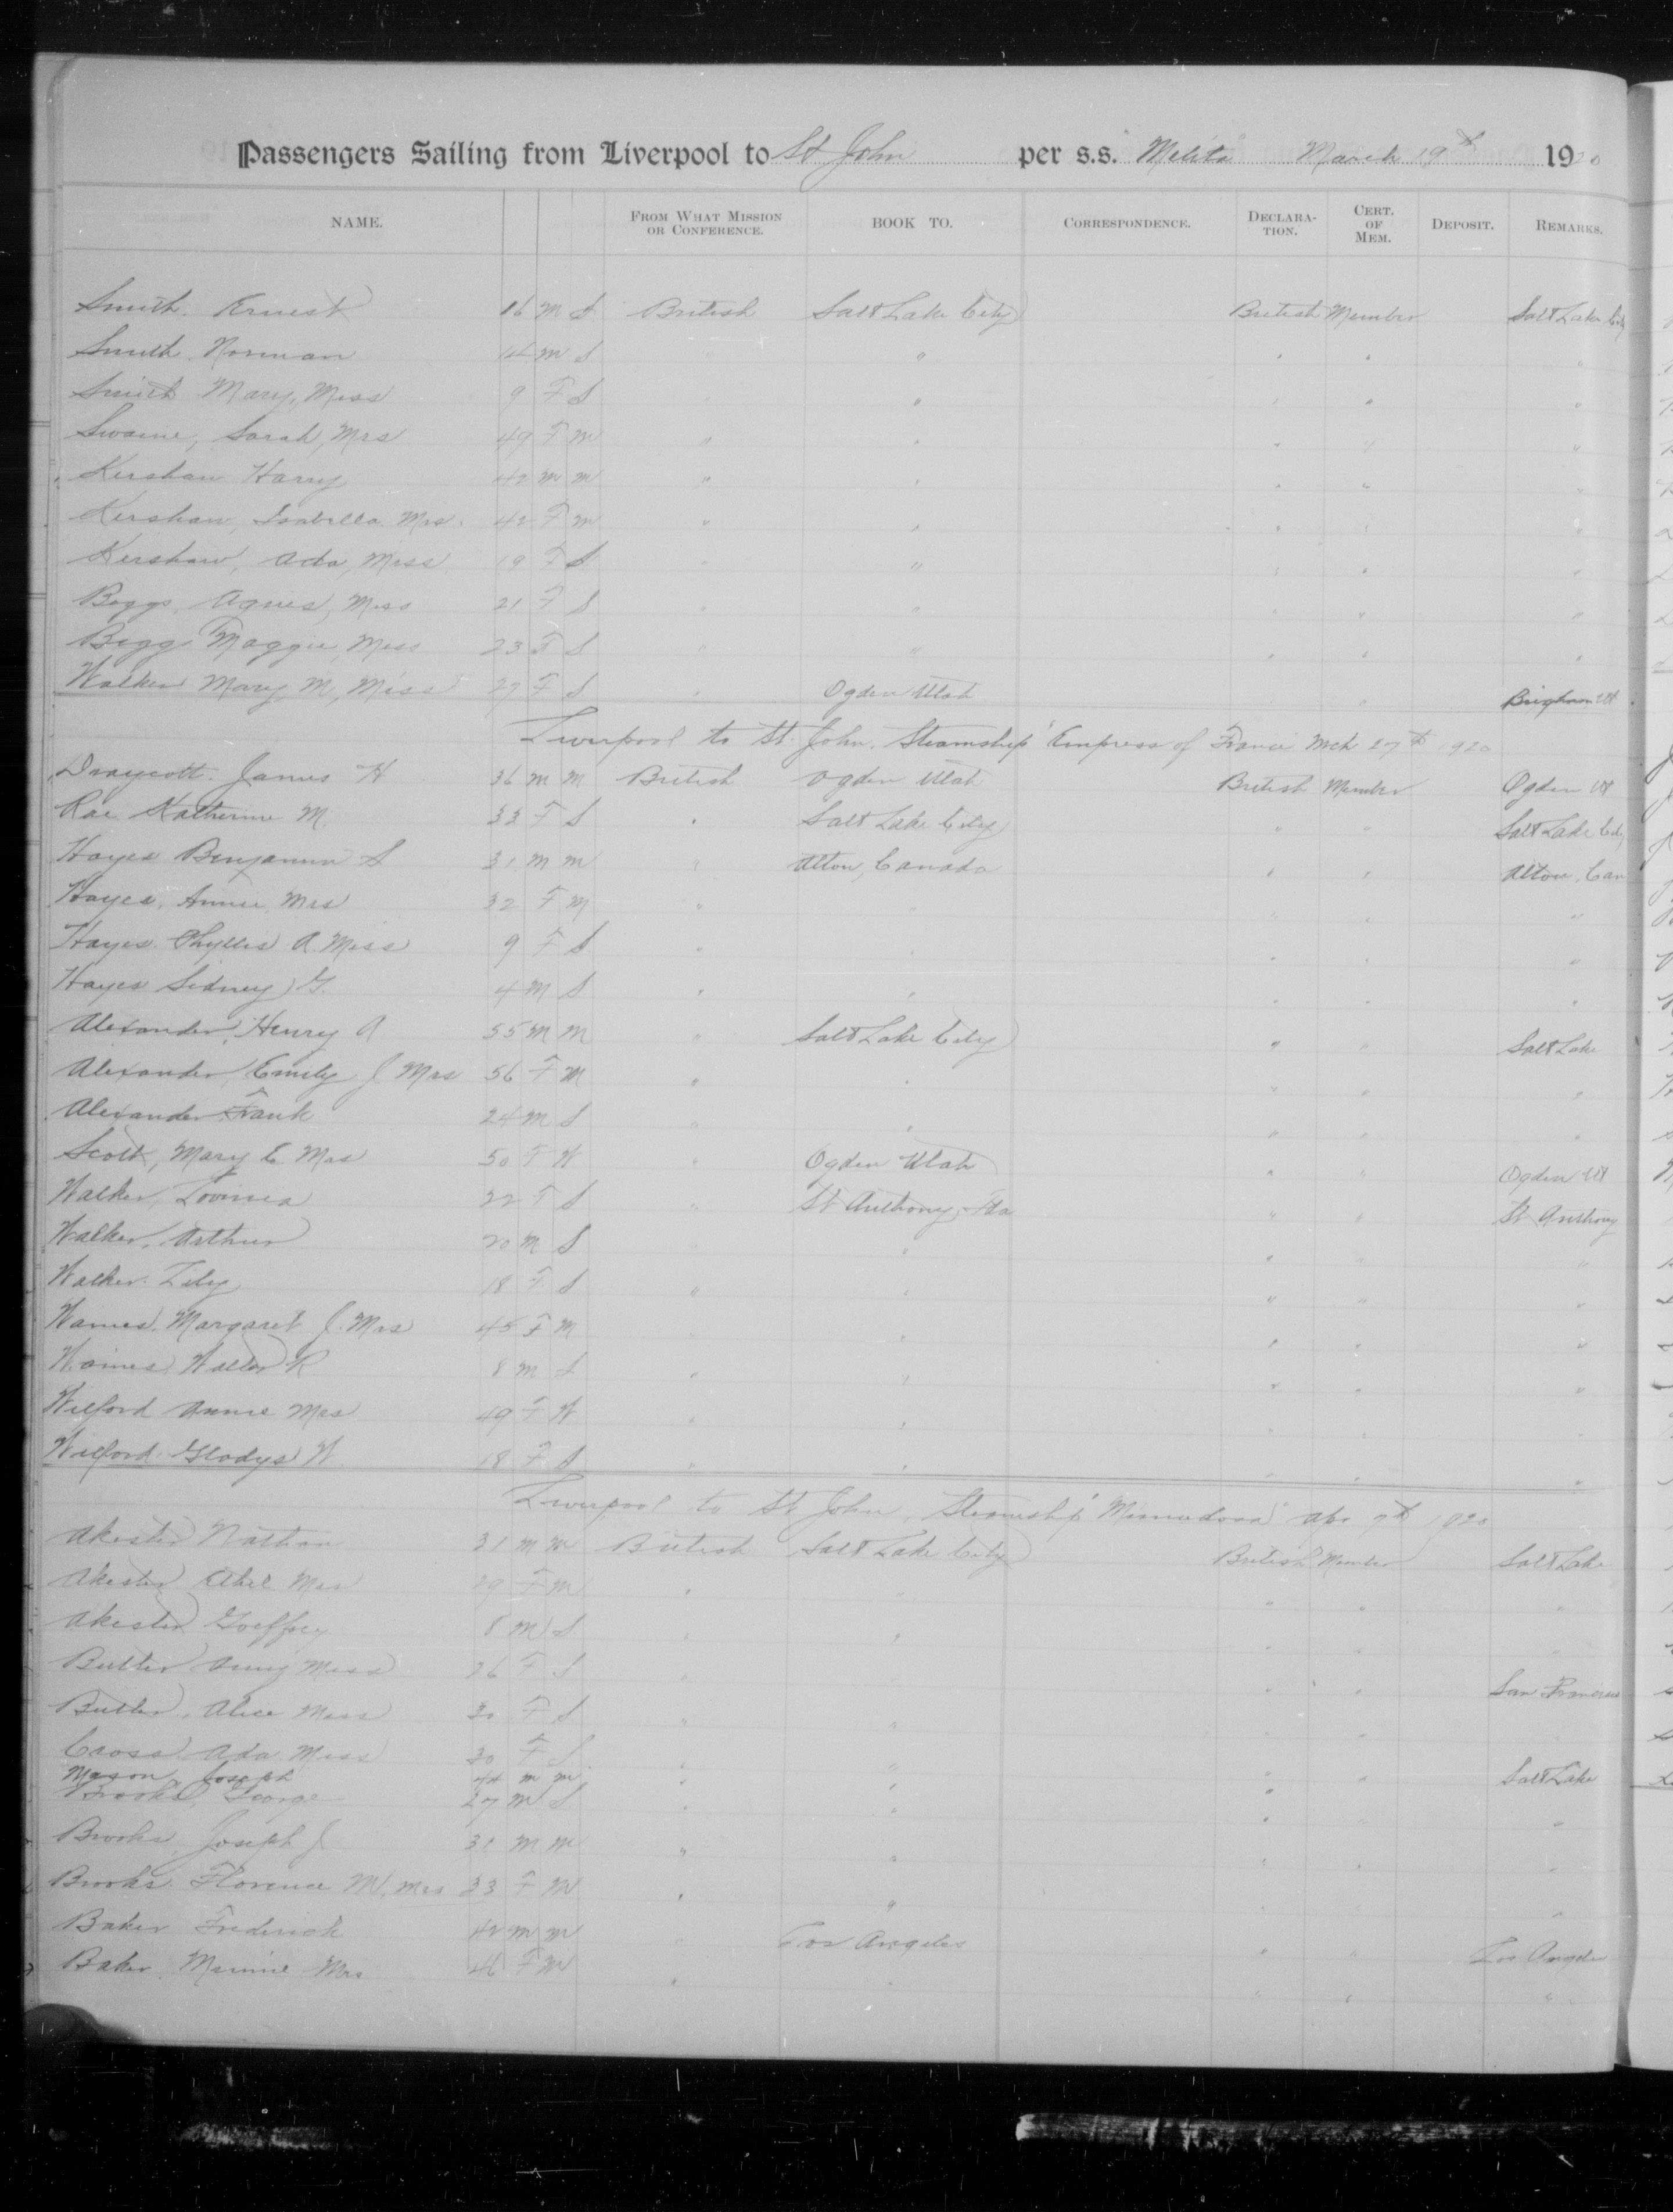 Passengers Sailing from Liverpool to St John per s.s. Melita March 19th 1920
NAME. FROM WHAT MISSION OR CONFERENCE. BOOK TO. CORRESPONDENCE. DECLARATION. CERT. OF MEM. DEPOSIT. REMARKS.
Smith. Ernest 16 M S British Salt Lake City British Member Salt Lake City
Smith. Norman M S " " " "
Smith Mary, Miss 9 F S " " " "
Swaine, Sarah, Mrs 49 F M " " " " "
Kershaw Harry 42 M M " " " " "
Kershaw, Isabella Mrs. 42 F M " " " " "
Kershaw, Ada, Miss 19 F S " " " " "
Boggs, Agnes, Miss 21 F S " " " " "
Bogg Maggie, Miss 23 F S " " " " "
Walker Mary M, Miss 27 F S " Ogden Utah " Brigham Ut
Liverpool to St. John. Steamship "Empress of France Mch 27th 1920
Draycott. James H 36 M M British Ogden Utah British Member Ogden Ut
Rae Katherine M. 33 F S " Salt Lake City " " Salt Lake City
Hayes Benjamin S 31 M M " Alton, Canada " " Alton, Can
Hayes, Annie, Mrs 32 F M " " " " "
Hayes. Phyllis A. Miss 9 F S " " " " "
Hayes Sidney G. 4 M S " " " " "
Alexander, Henry A 55 M M " Salt Lake City " " Salt Lake
Alexander, Emily J Mrs 56 F M " " " " "
Alexander Frank 24 M S " " " " "
Scott, Mary E Mrs 50 F W " Ogden Utah " " Ogden Ut
Walker, Lovinia 22 F S " St Anthony, Ida " " St Anthony
Walker, Arthur 20 M S " " " "
Walker. Lily 18 F S " " " " "
Wames. Margaret J. Mrs 45 F M " " " "
Wames Walter R 8 M S " " " " "
Wilford Annie Mrs 49 F W " " " "
Wilford. Gladys W 18 F S " " " " "
Liverpool to St John, Steamship "Minnedosa" Apr 7th 1920
Akester Nathan 31 M M British Salt Lake City British Member Salt Lake
Akester Ethel Mrs 29 F M " " " " "
Akester Goeffrey 8 M S " " " "
Butler Amy Miss 26 F S " " " San Francisco
Butler, Alice Miss 30 F S " " " "
Cross Ada Miss 30 F S " " " " Salt Lake
Mason, Joseph 44 M M " " "
Brooks, George 27 M S " " " " "
Brooks, Joseph J 31 M M " " " " "
Brooks. Florence M, Mrs 33 F M " " "
Baker Frederick 42 M M " Los Angeles " " Los Angeles
Baker, Minnie Mrs 46 F M " " " " "